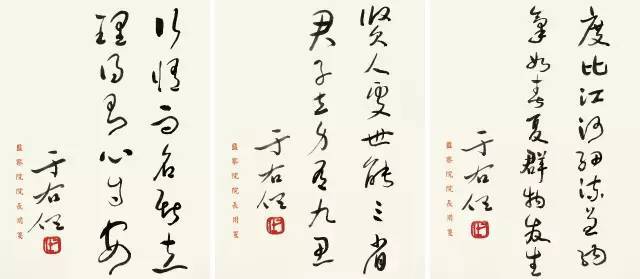 行修而名斯立
理得則心自安
于右任
監察院院長用箋
賢人處世能三省
君子立身有九思
于右任
監察院院長用箋
度比江河細流兼納
氣如春夏群物發生
于右任
監察院院長用箋